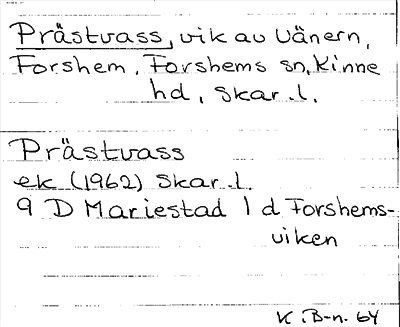 Prästvass, vik av Vänern,
Forshem, Forshems sn, Kinne
hd, Skar.l.
Prästvass
ek (1962) Skar.l.
9 D Mariestad 1 d Forshems-
viken
K.B-n. 64